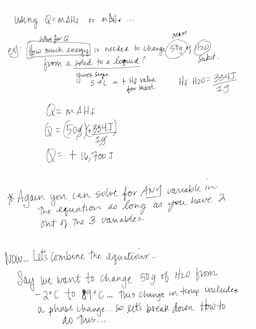 Using Q=mΔHf or nΔHr ...
solve for Q
mass
ex) How much energy is needed to change 50g of H2O
from a solid to a liquid?
subst.
gives sign
S→L = + Hf value
for subst.
Hf H2O = 334J
1g
Q= mΔHf
Q = (50g)(+334J)
1g
Q= + 16,700 J
* Again you can solve for ANY variable in
the equation as long as you have 2
out of the 3 variables.
Now... Let's combine the equations..
Say we want to change 50g of H2O from
-2°C to 89°C... This change in temp includes
a phase change.. so let's break down how to
do this...